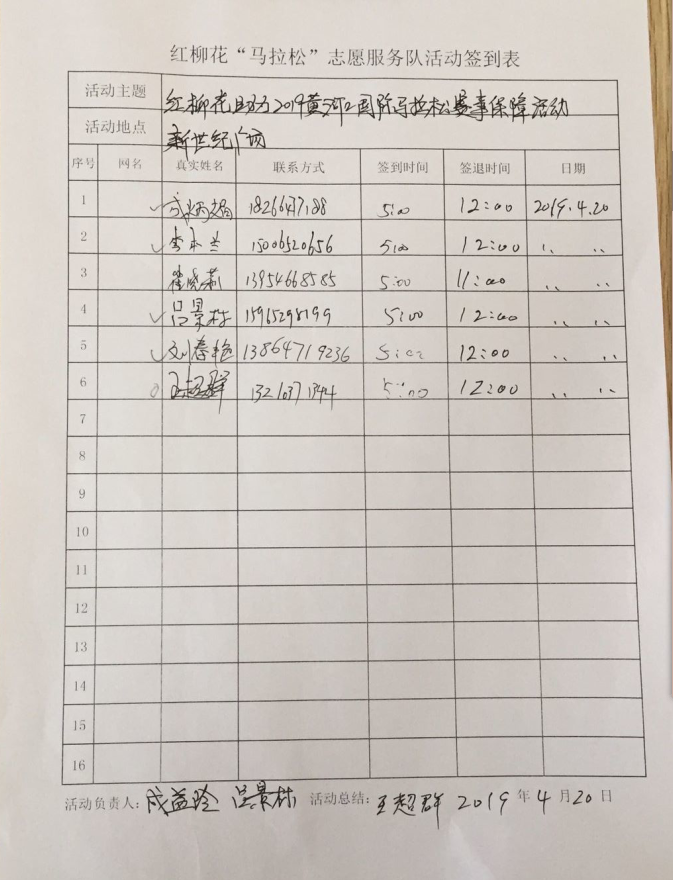 红柳花“马拉松”志愿服务队活动签到表
活动主题 红柳花助力2019黄河口国际马拉松赛事保障活动
活动地点 新世纪广场
序号 网名 真实姓名 联系方式 签到时间 签退时间 日期
1 5:00 12:00 2019.4.20
2 李永兰 15006520656 5:00 12:00 〃 〃
3 崔晓莉 13954668585 5:00 11:00 〃 〃
4 吕景林 15965298199 5:00 12:00 〃 〃
5 刘春艳 13864719236 5:00 12:00 〃 〃
6 王超群 5:00 12:00 〃 〃
7
8
9
10
11
12
13
14
15
16
活动负责人: 成益玲 吕景林 活动总结: 王超群 2019 年 4 月 20 日